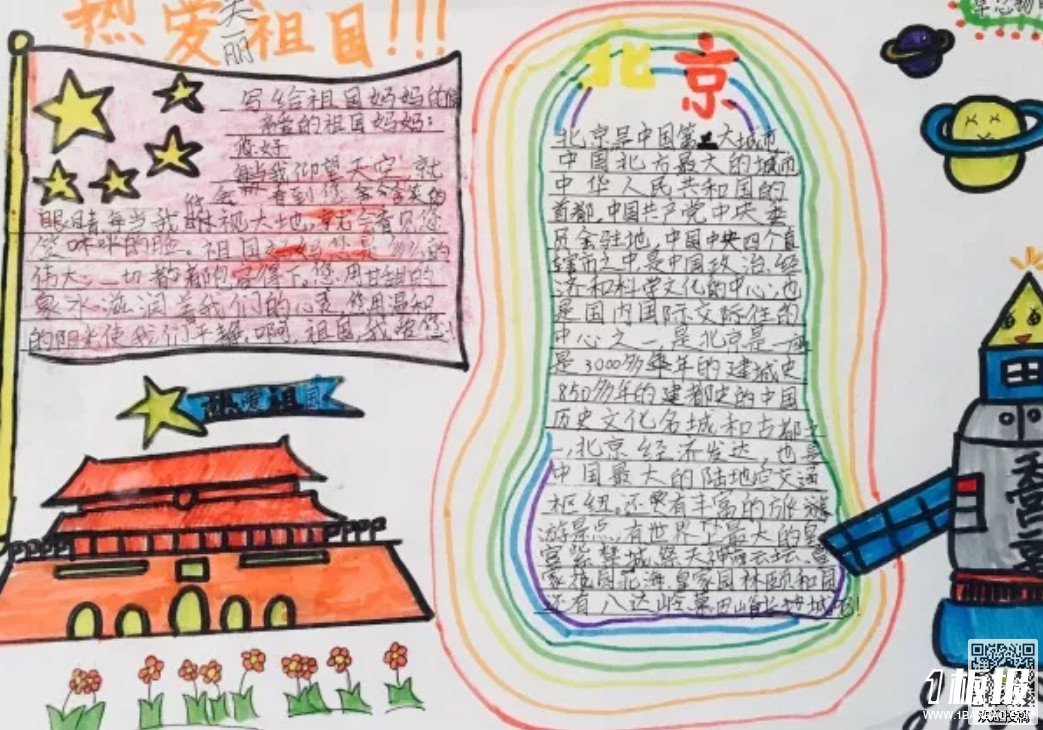 热爱祖国!!!
美丽
写给祖国妈妈的信
亲爱的祖国妈妈:
您好
每当我仰望天空,就
会看到您含笑的
眼睛,每当我俯视大地,就会看见您
笑咪咪的脸。祖国妈妈您是
伟大,一切都能包容得下。您用甘甜的
泉水滋润着我们的心灵,您用温和
的阳光使我们干燥。啊,祖国,我爱您!
热爱祖国
北京
北京是中国第二大城市,
中国北方最大的城市
中华人民共和国的
首都,中国共产党中央委
员会驻地,中国中央四个直
辖市之中,是中国政治、经
济和科学文化的中心,也
是国内国际交际往的
中心之一,是北京是一座
是3000多年的建城史
850多年的建都史的中国
历史文化名城和古都之
一,北京经济发达,也是
中国最大的陆地交通
枢纽,还有丰富的旅
游景点,有世界上最大的皇
宫紫禁城、祭天神庙天坛、皇
家花园北海、皇家园林颐和园
还有八达岭、慕田峪长城!
1板报
WWW.1BANBAO.COM
欢迎投稿